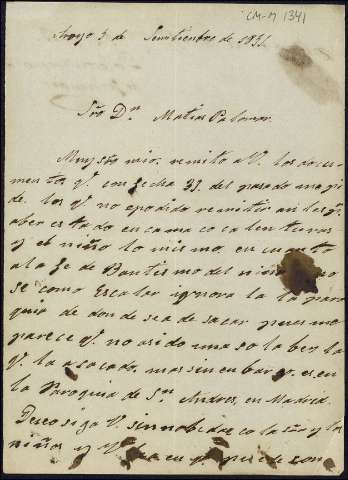 CM-M 1341
Arroyo 3 de Septiembre de 1831.
Sor Dn Matias Palomar
Muy sor mio: remito a V. los docu-
mentos q. con fecha 31 del pasado me pi-
de. los q. no e podido remitir antes pr
aber estado en cama co calenturas
y el niño lo mismo. en cuanto
a la fe de Bautismo del niño no
se como Escalar ignora la la paro
quia de don de sea de sacar pues me
parece q. no asido una sola bez la
q. la a sacado, mas sin en bargo es en
la Paroquia de Sn Andres, en Madrid.
Deseo siga V. sin nobedad co la sra y los
niños y